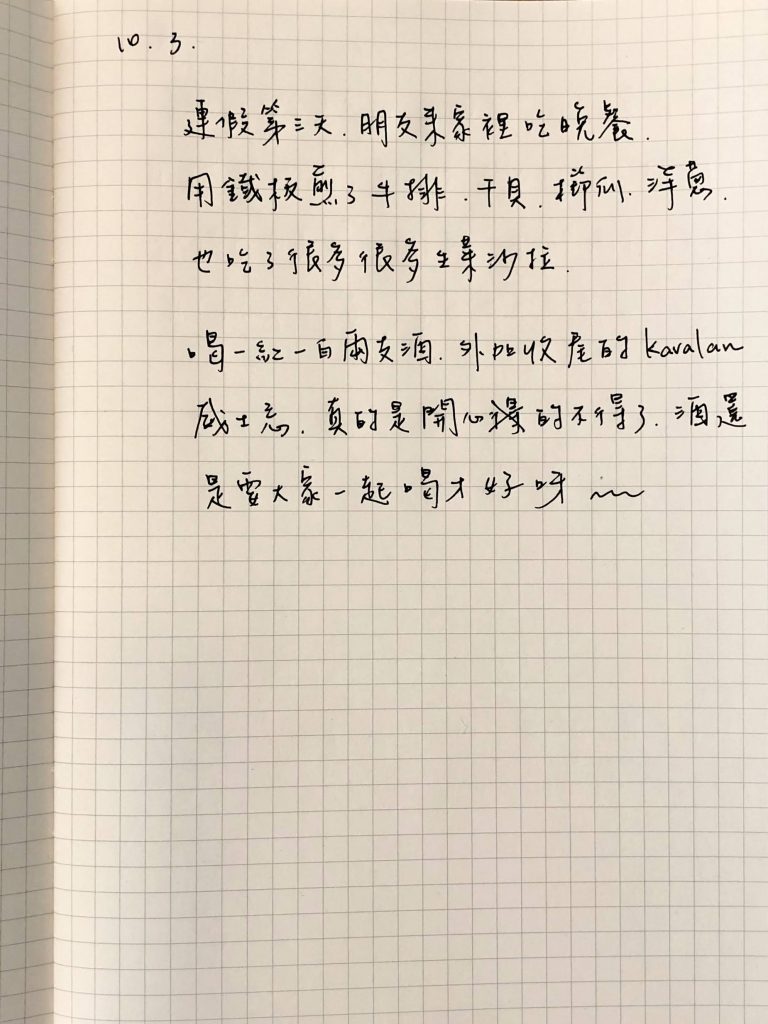 10.3.
連假第三天.朋友來家裡吃晚餐.
用鐵板煎了牛排.干貝.櫛瓜.洋蔥.
也吃了很多很多生菜沙拉.
喝一紅一白兩支酒.外加收尾的 Kavalan
威士忌.真的是開心爆的不得了.酒還
是要大家一起喝才好呀~~